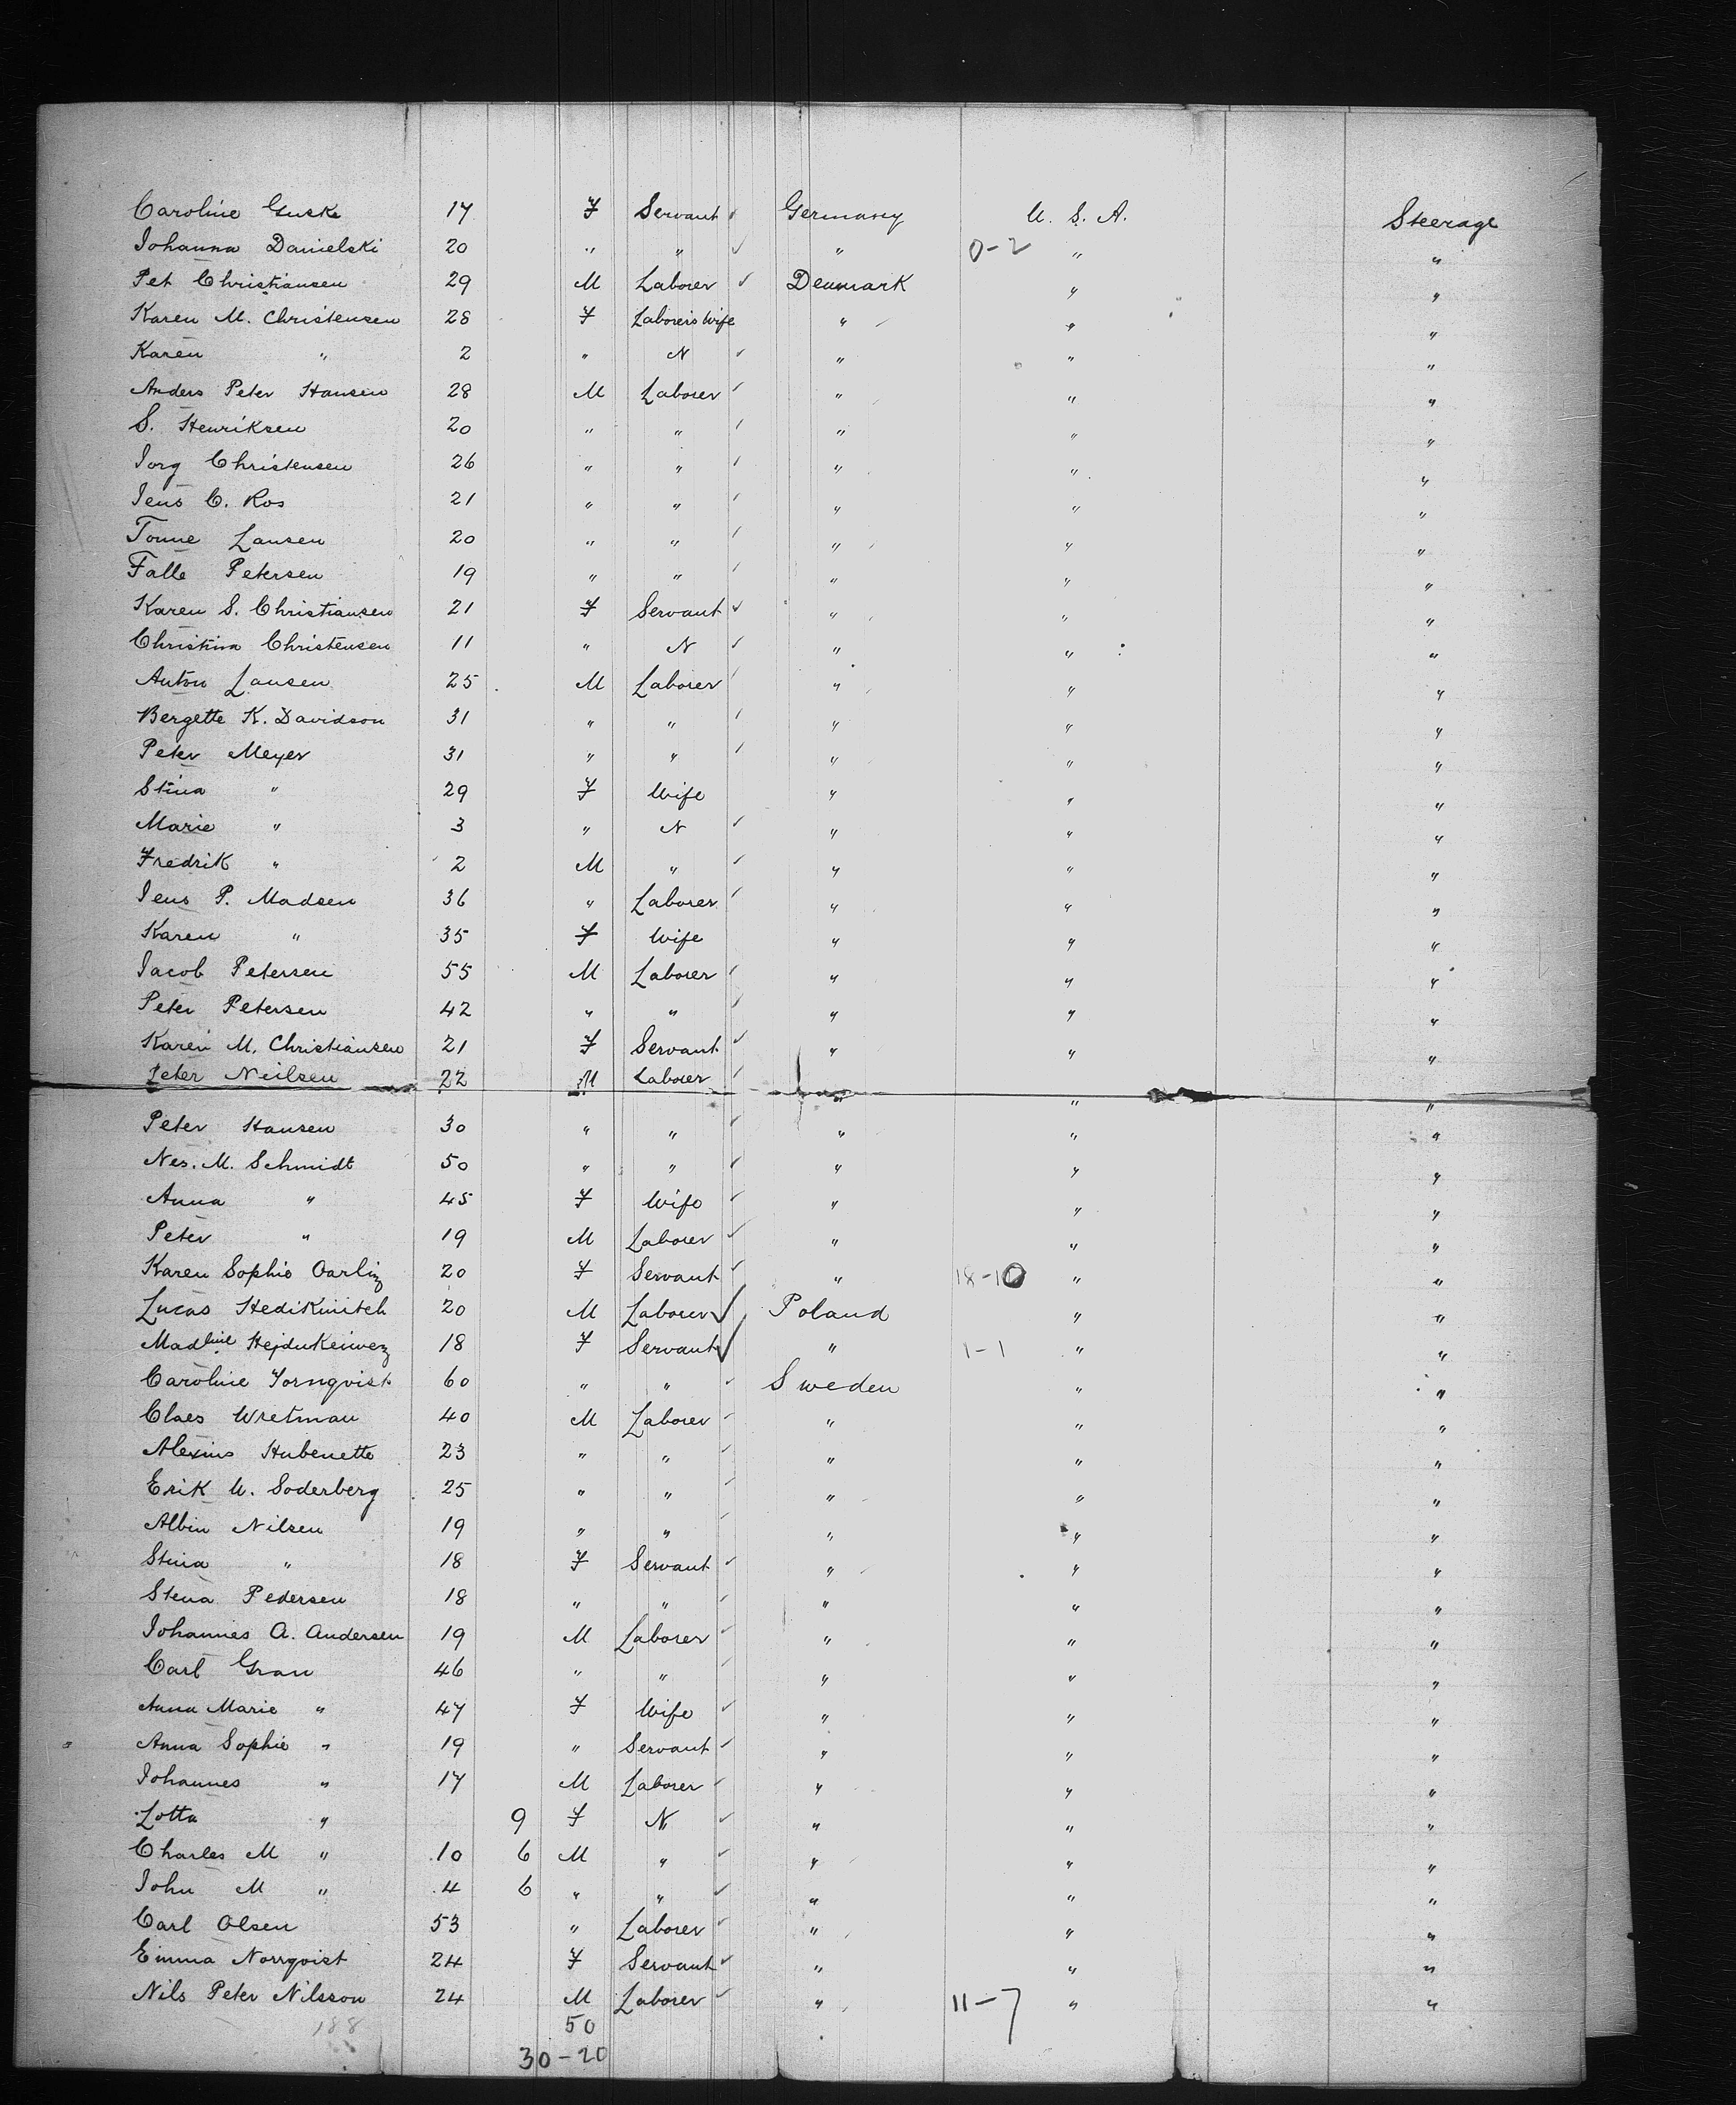 Caroline Guske 17 F Servant Germany U. S. A. Steerage
Johanna Danielski 20 " " " 0-2 " "
Pet Christiansen 29 M Laborer Denmark " "
Karen M. Christensen 28 F Laborers Wife " " "
Karen " 2 " N " " "
Anders Peter Hansen 28 M Laborer " " "
S. Henriksen 20 " " " " "
Jorg Christensen 26 " " " " "
Jens C. Ros 21 " " " " "
Tonne Lausen 20 " " " " "
Falle Petersen 19 " " " " "
Karen S. Christiansen 21 F Servant " " "
Christina Christensen 11 " N " " "
Anton Lausen 25 M Laborer " " "
Bergette K. Davidson 31 " " " " "
Peter Meyer 31 " " " " "
Stina " 29 F Wife " " "
Marie " 3 " N " " "
Fredrik " 2 M " " " "
Jens P. Madsen 36 " Laborer " " "
Karen " 35 F Wife " " "
Jacob Petersen 55 M Laborer " " "
Peter Petersen 42 " " " " "
Karen M. Christiansen 21 F Servant " " "
Peter Neilsen 22 M Laborer " " "
Peter Hansen 30 " " " " "
Nes. M. Schmidt 50 " " " " "
Anna " 45 F Wife " " "
Peter " 19 M Laborer " " "
Karen Sophie 20 F Servant " 18-10 " "
Lucas 20 M Laborer Poland " "
Madline 18 F Servant " 1-1 " "
Caroline 60 " " Sweden " "
Claes Wretman 40 M Laborer " " "
Alexius Hubenette 23 " " " " "
Erik U. Soderberg 25 " " " " "
Albin Nilsen 19 " " " " "
Stina " 18 F Servant " " "
Stena Pedersen 18 " " " " "
Johannes A. Andersen 19 M Laborer " " "
Carl Gran 46 " " " " "
Anna Marie " 47 F Wife " " "
Anna Sophie " 19 " Servant " " "
Johannes " 17 M Laborer " " "
Lotta " 9 F N " " "
Charles M " 10 6 M " " " "
John M " 4 6 " " " " "
Carl Olsen 53 " Laborer " " "
Emma Norrqvist 24 F Servant " " "
Nils Peter Nilsson 24 M Laborer " 11-7 " "
188 50
30-20